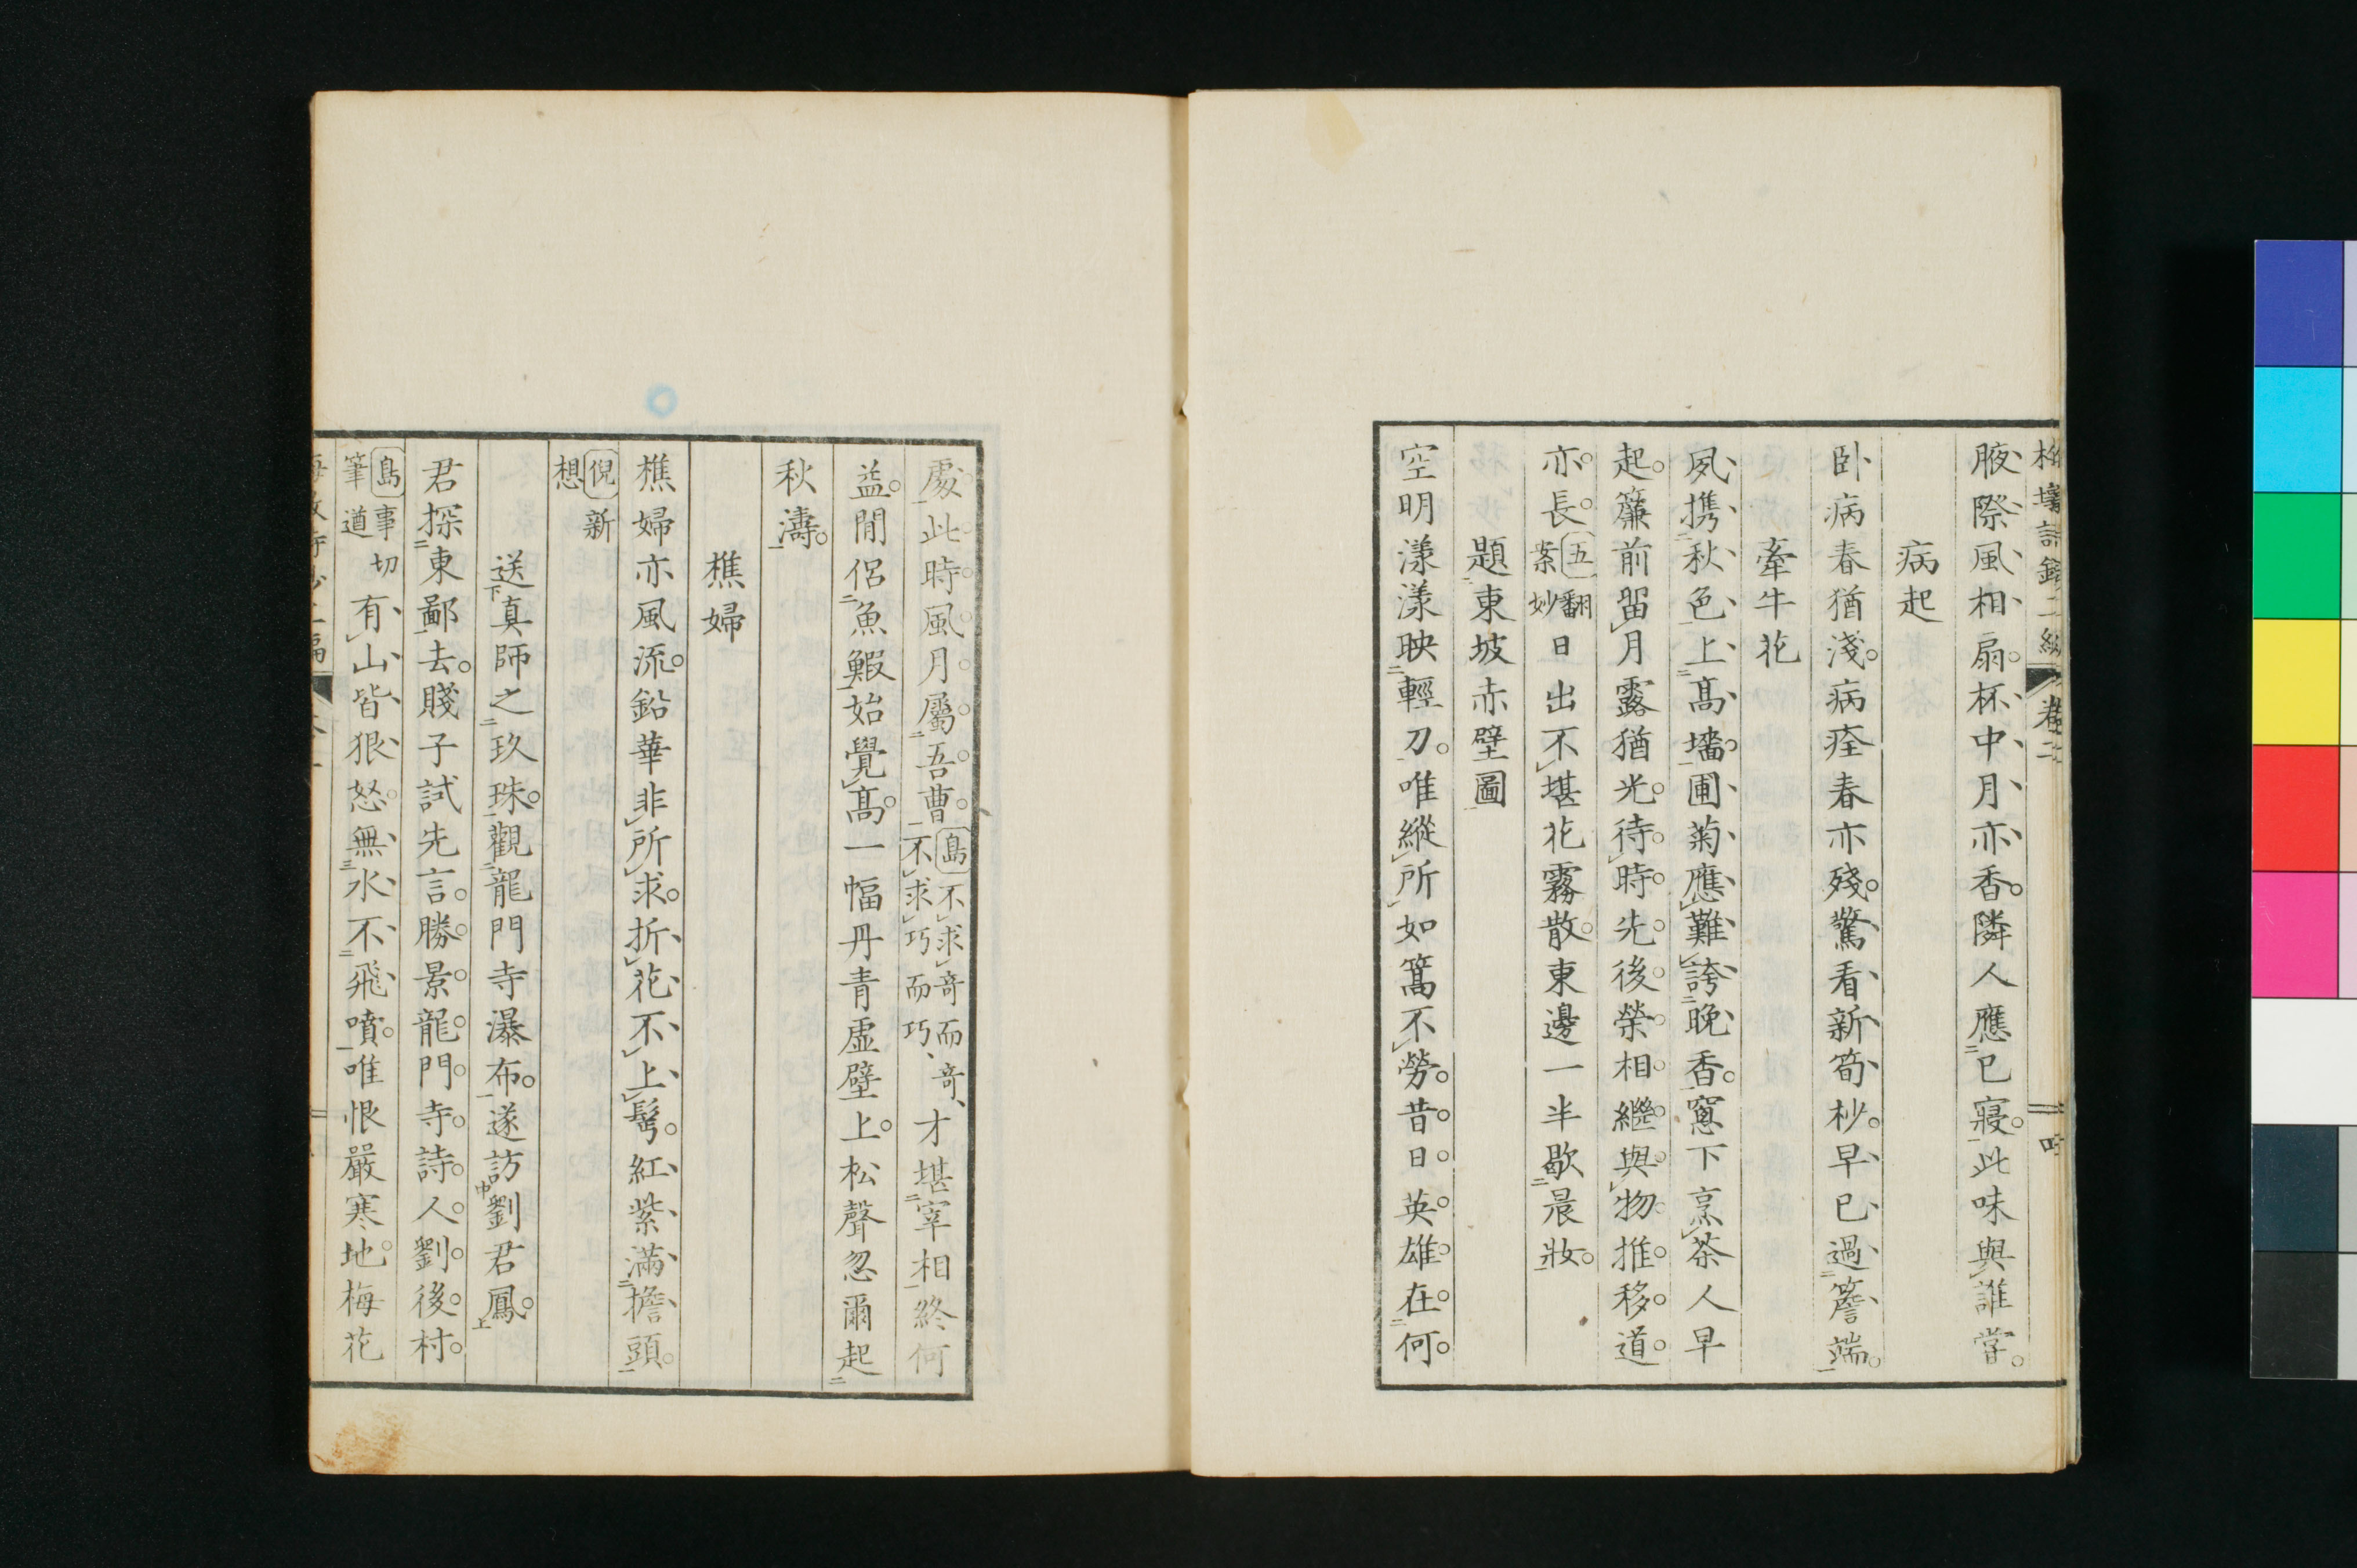 腋際風相扇杯中月亦香隣人應已寢此味與誰嘗
病起
卧病春猶淺病痊春亦殘驚看新筍杪早已過簷端
牽牛花
夙攜秋色上高墻圃菊應難誇晚香窻下烹茶人早
起簾前留月露猶光待時先後榮相繼與物推移道
亦長五翻案妙日出不堪花霧散東邊一半歇晨妝
題東坡赤壁圖
空明漾漾映輕刀唯縱所如篙不勞昔日英雄在何
處此時風月屬吾曹島不求奇而奇、不求巧而巧、才堪宰相終何
益閒侶魚鰕始覺高一幅丹青虛壁上松聲忽爾起
秋濤
樵婦
樵婦亦風流鉛華非所求折花不上髩紅紫滿擔頭
倪新想
送真師之玖珠觀龍門寺瀑布遂訪劉君鳳
君探東鄙去賤子試先言勝景龍門寺詩人劉後村
島事切筆道有山皆狠怒無水不飛噴唯恨嚴寒地梅花